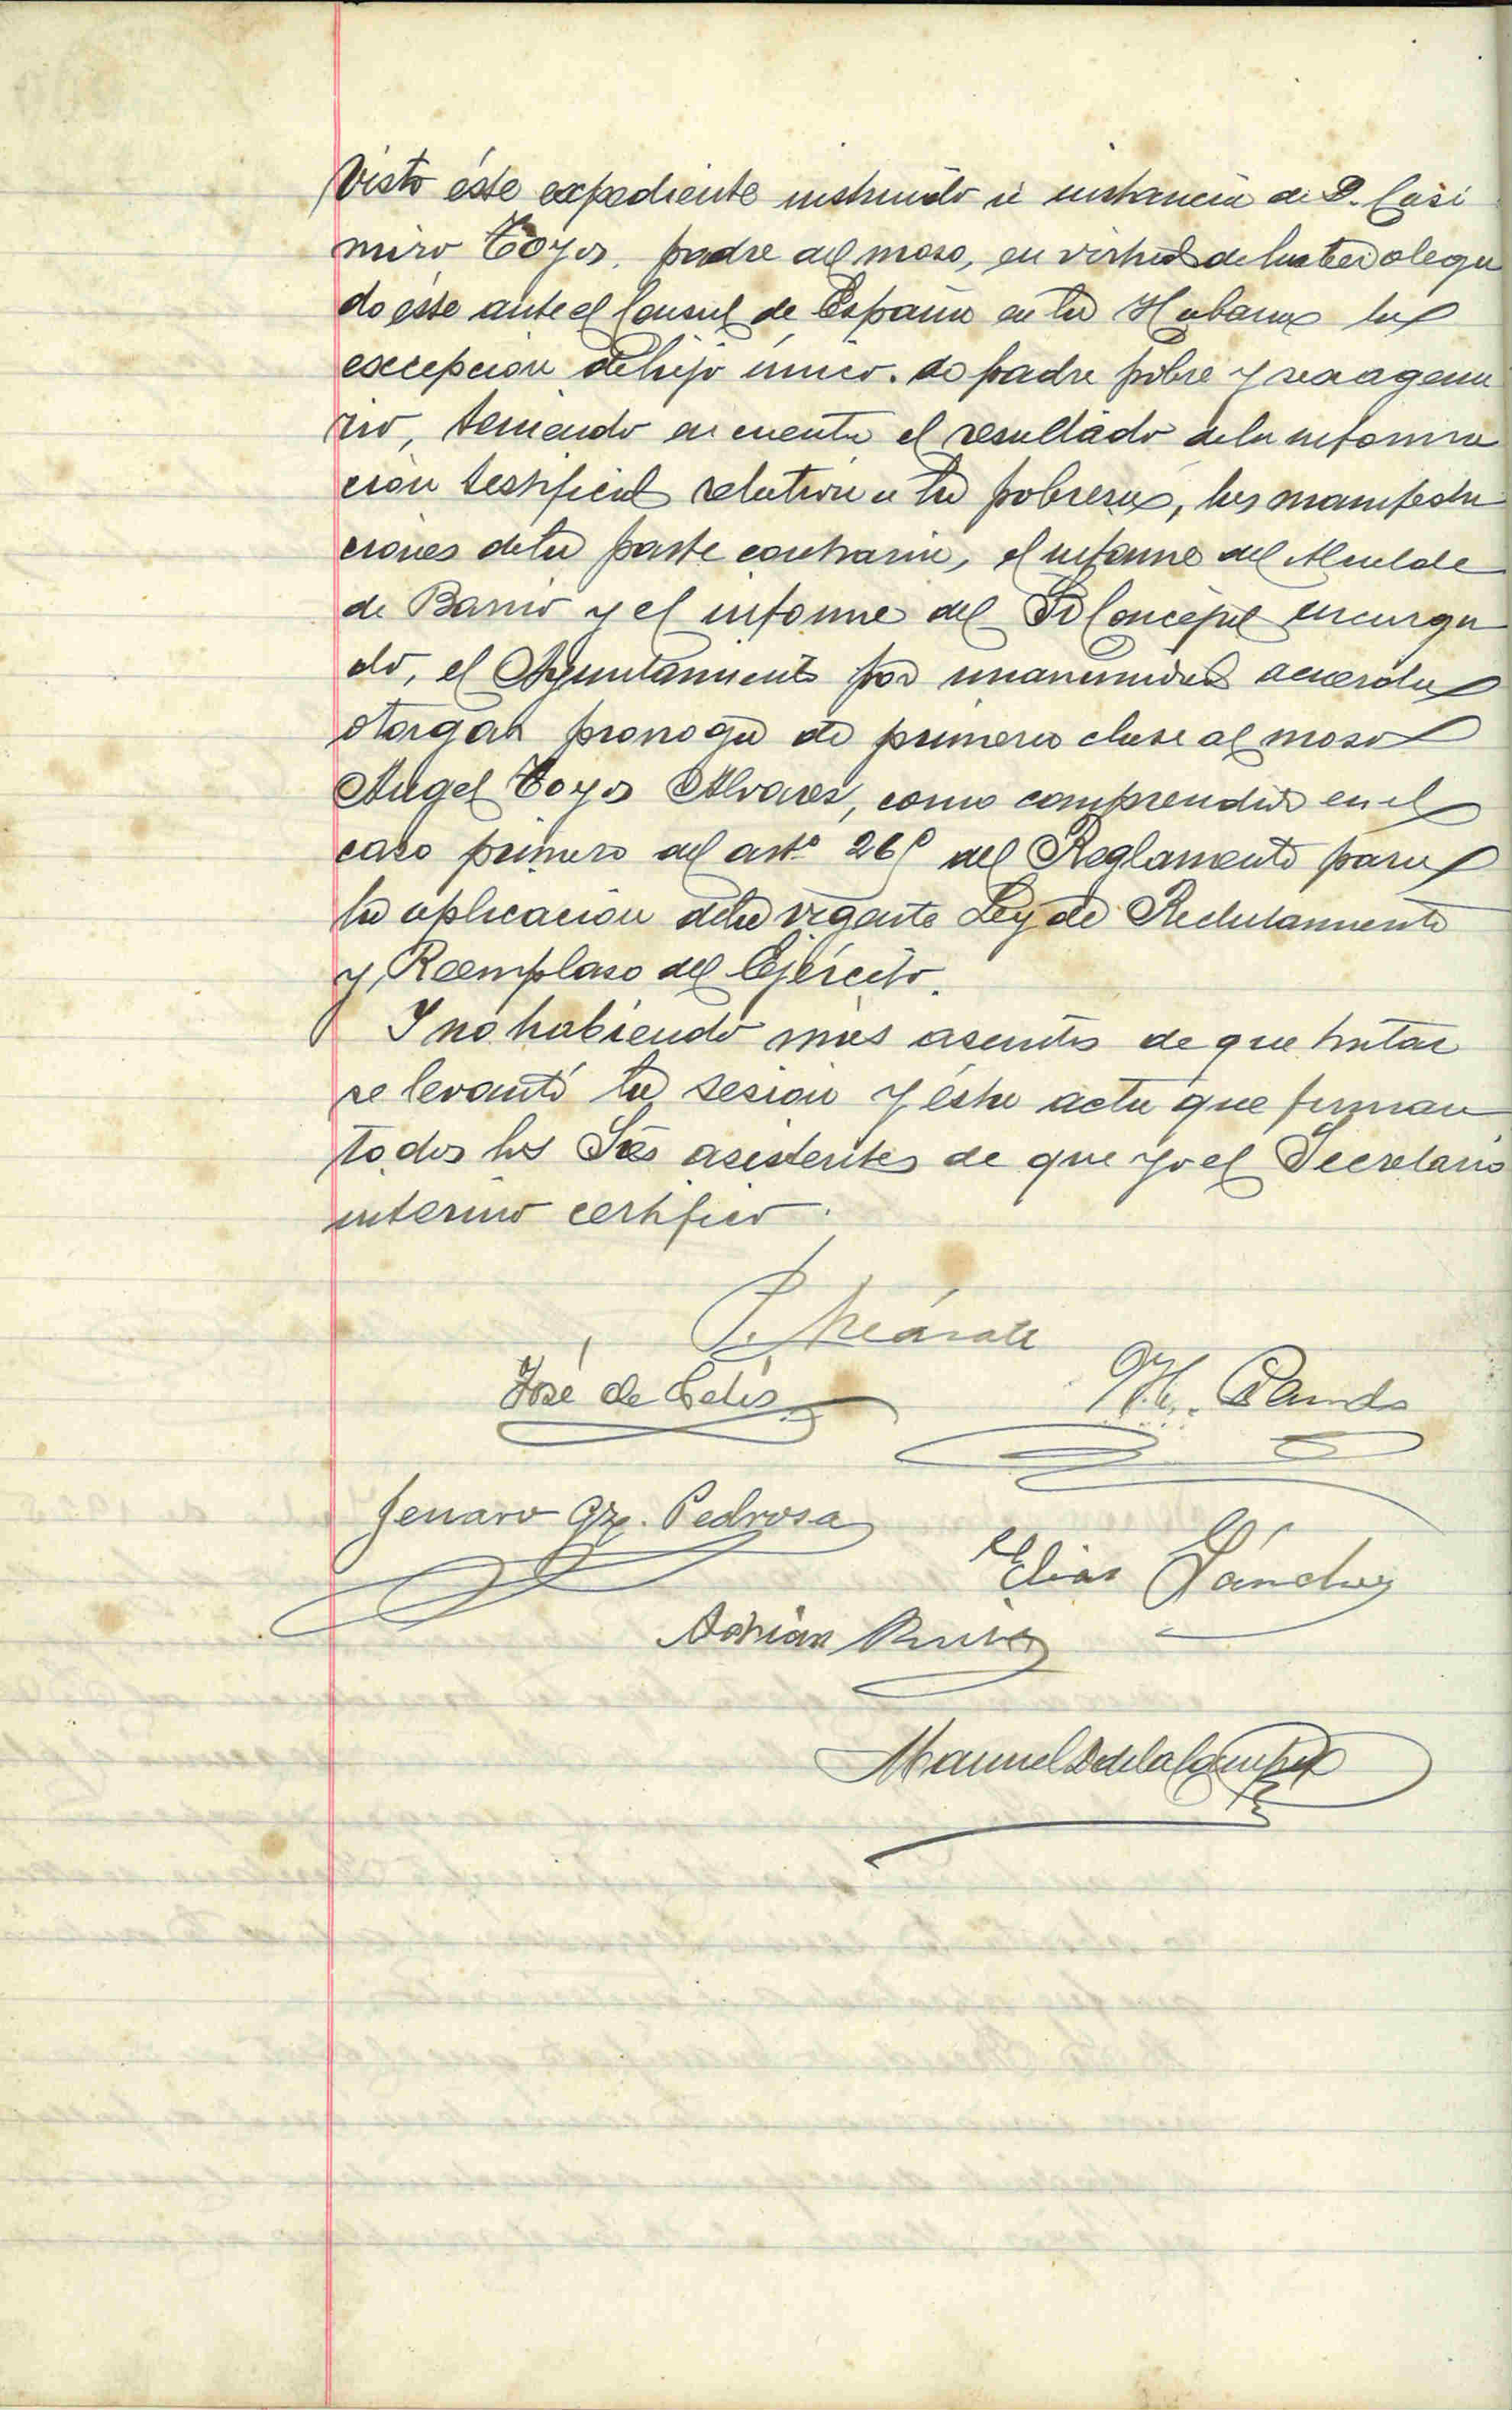 Visto éste expediente instruido a instancia de D. Casi
miro Toyos, padre del moso, en virtud de haber alega
do éste ante el Consul de España en la Habana la
excepcion de hijo único de padre pobre y sexagena
rio, teniendo en cuenta el resultado de la informa
cion testifical relativa a la pobreza, las manifesta
ciones de la parte contraria, el informe del Alcalde
de Barrio y el informe del Sr Concejal encarga
do, el Ayuntamiento por unanimidad acuerda
otorgar prorroga de primera clase al moso
Angel Toyos Alvares, como comprendido en el
caso primero del artº 265 del Reglamento para
la aplicacion de la vigente Ley de Reclutamiento
y Reemplaso del Ejército.
Y no habiendo mas asuntos de que tratar
se levantó la sesion y ésta acta que firman
todos los Sres asistentes de que yo el Secretario
interino certifico.
José de Celis
Pando
Genaro Gz. Pedrosa
Elias Sánchez
Adrián
Manuel D de la Campa